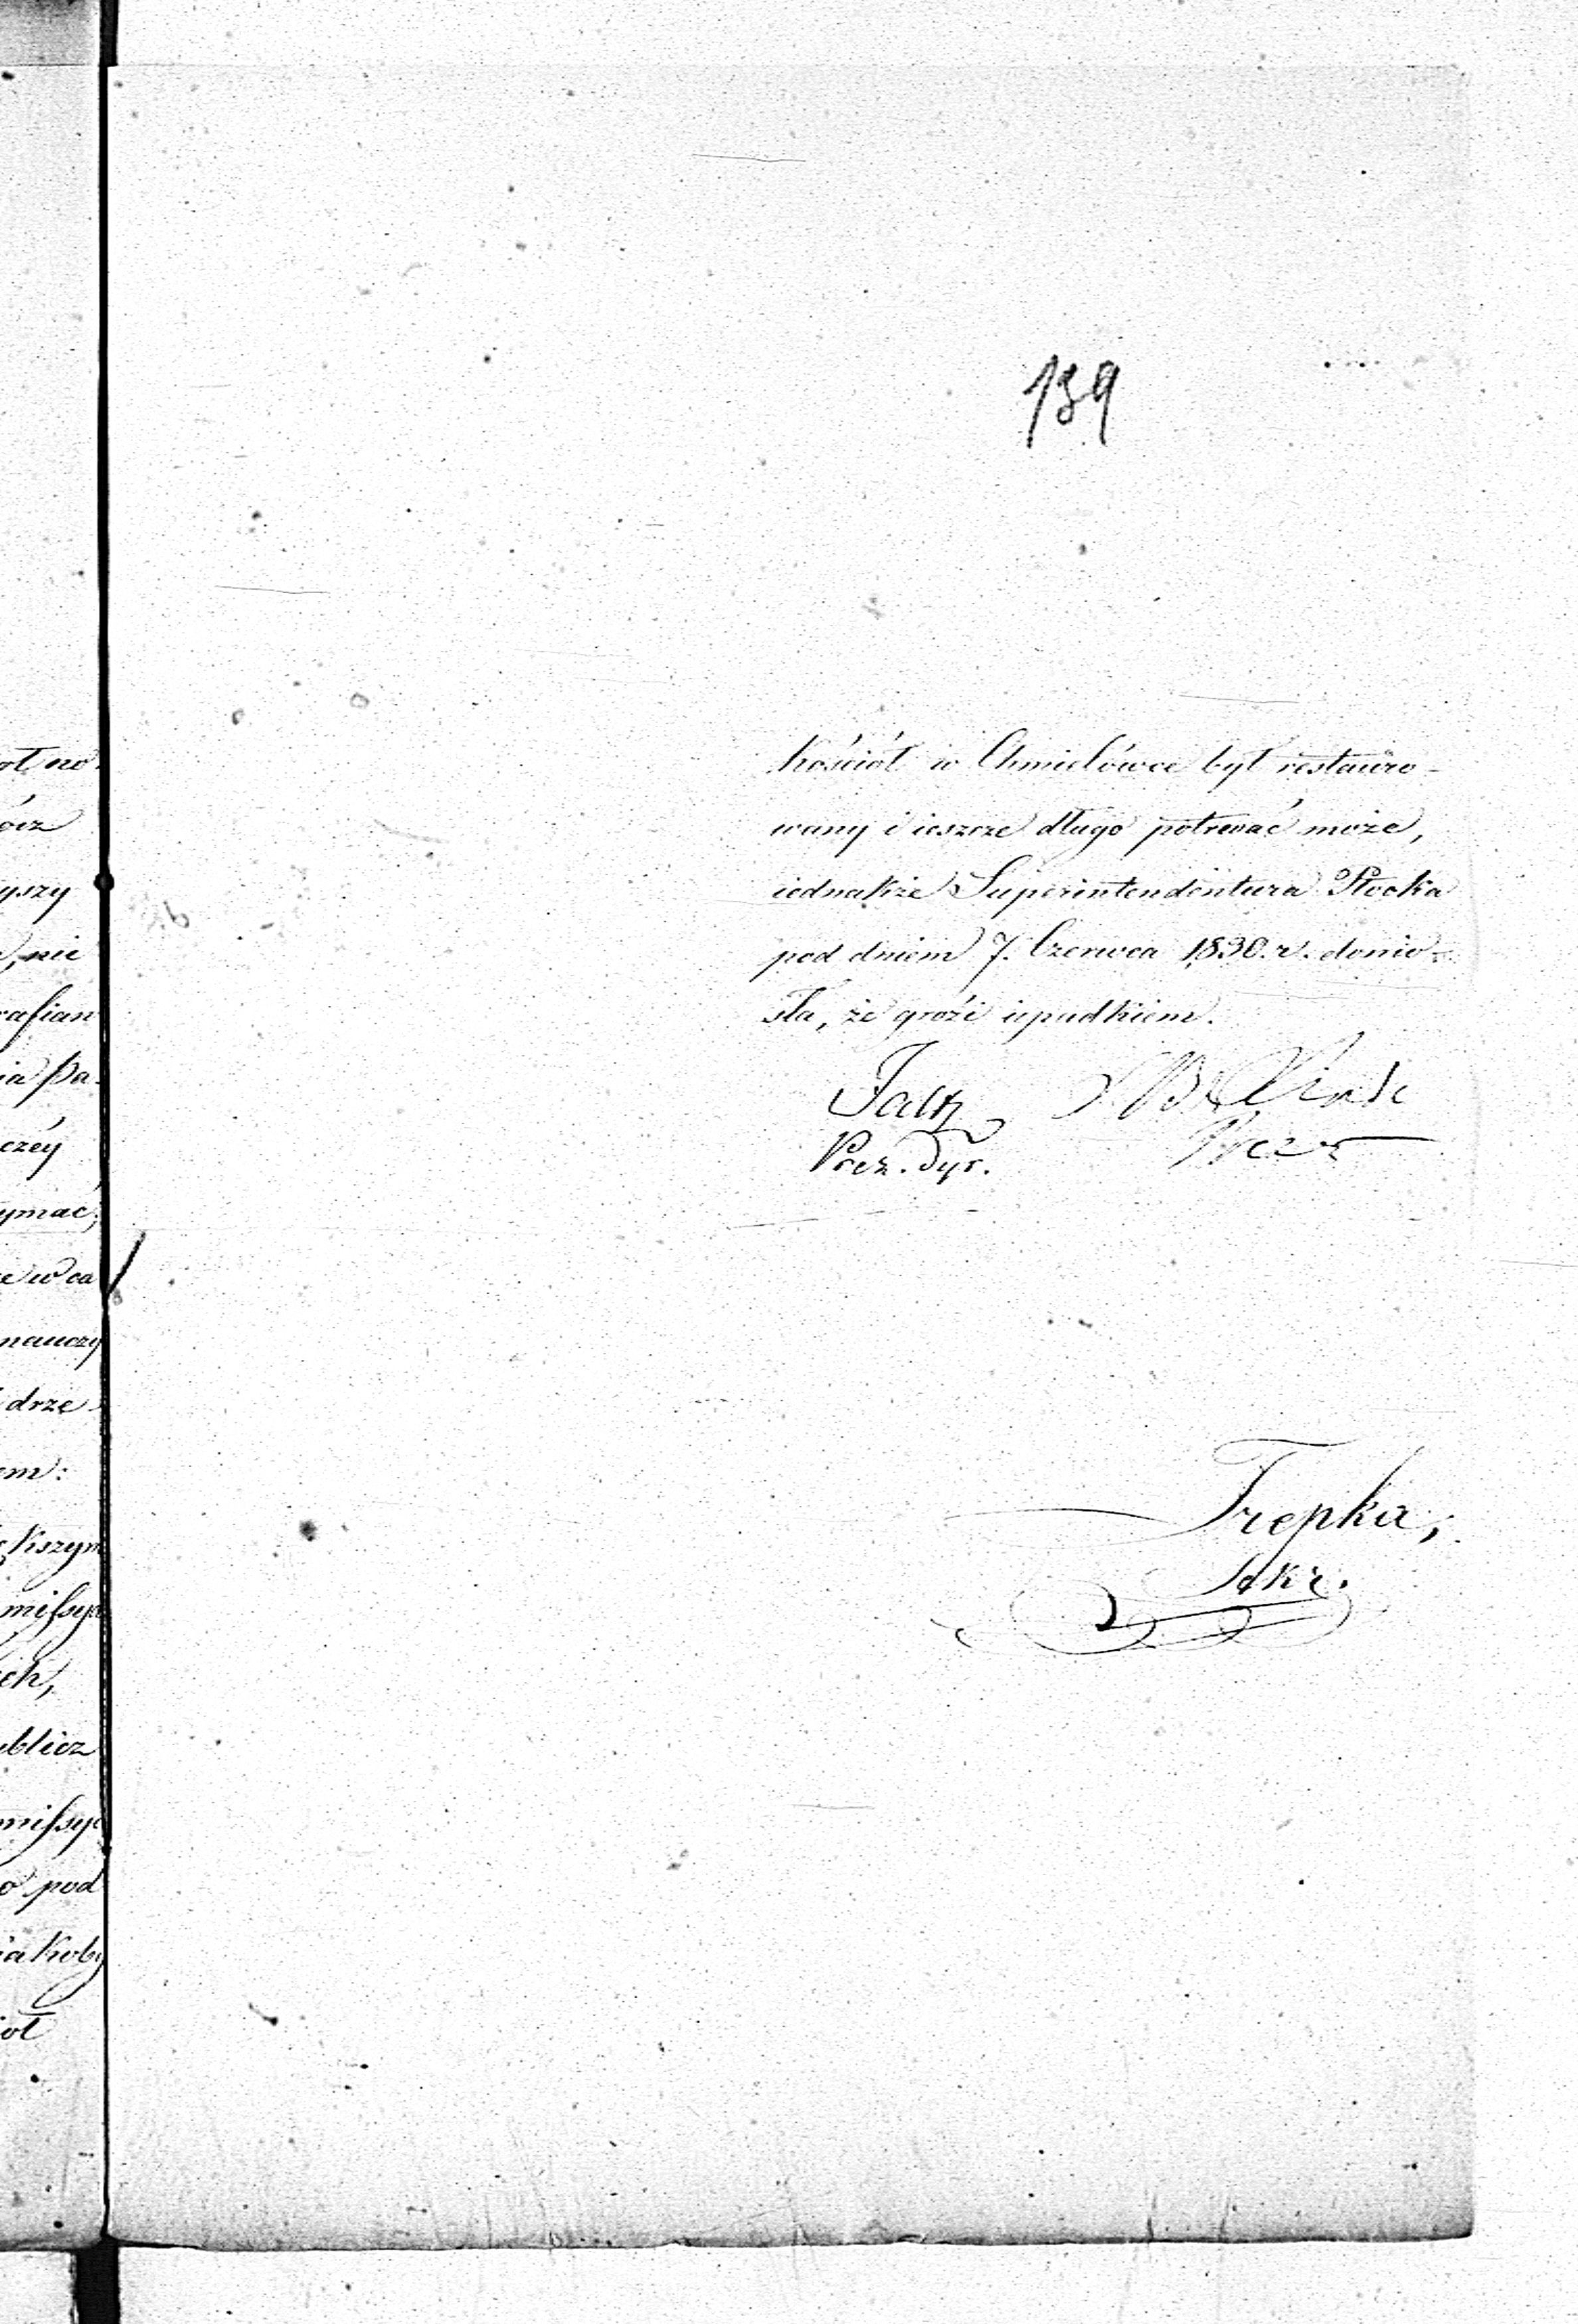 139
ot no
ócz
yszy
, nie
rafian
ia Pa
czéy
ymać,
e w ca
nauczy
drze
em:
kszym
missyi
ch,
ublicz
missyi
o pod
iakoby
ioł
kościół w Chmielówce był restauro-
wany i ieszcze długo potrwać może,
iednakże Superintendentura Płocka
pod dniem 7. Czerwca 1830. r. donio-
sła, że grozi upadkiem.
Prez. Dyr.
Prez
Trepka,
Sekr.